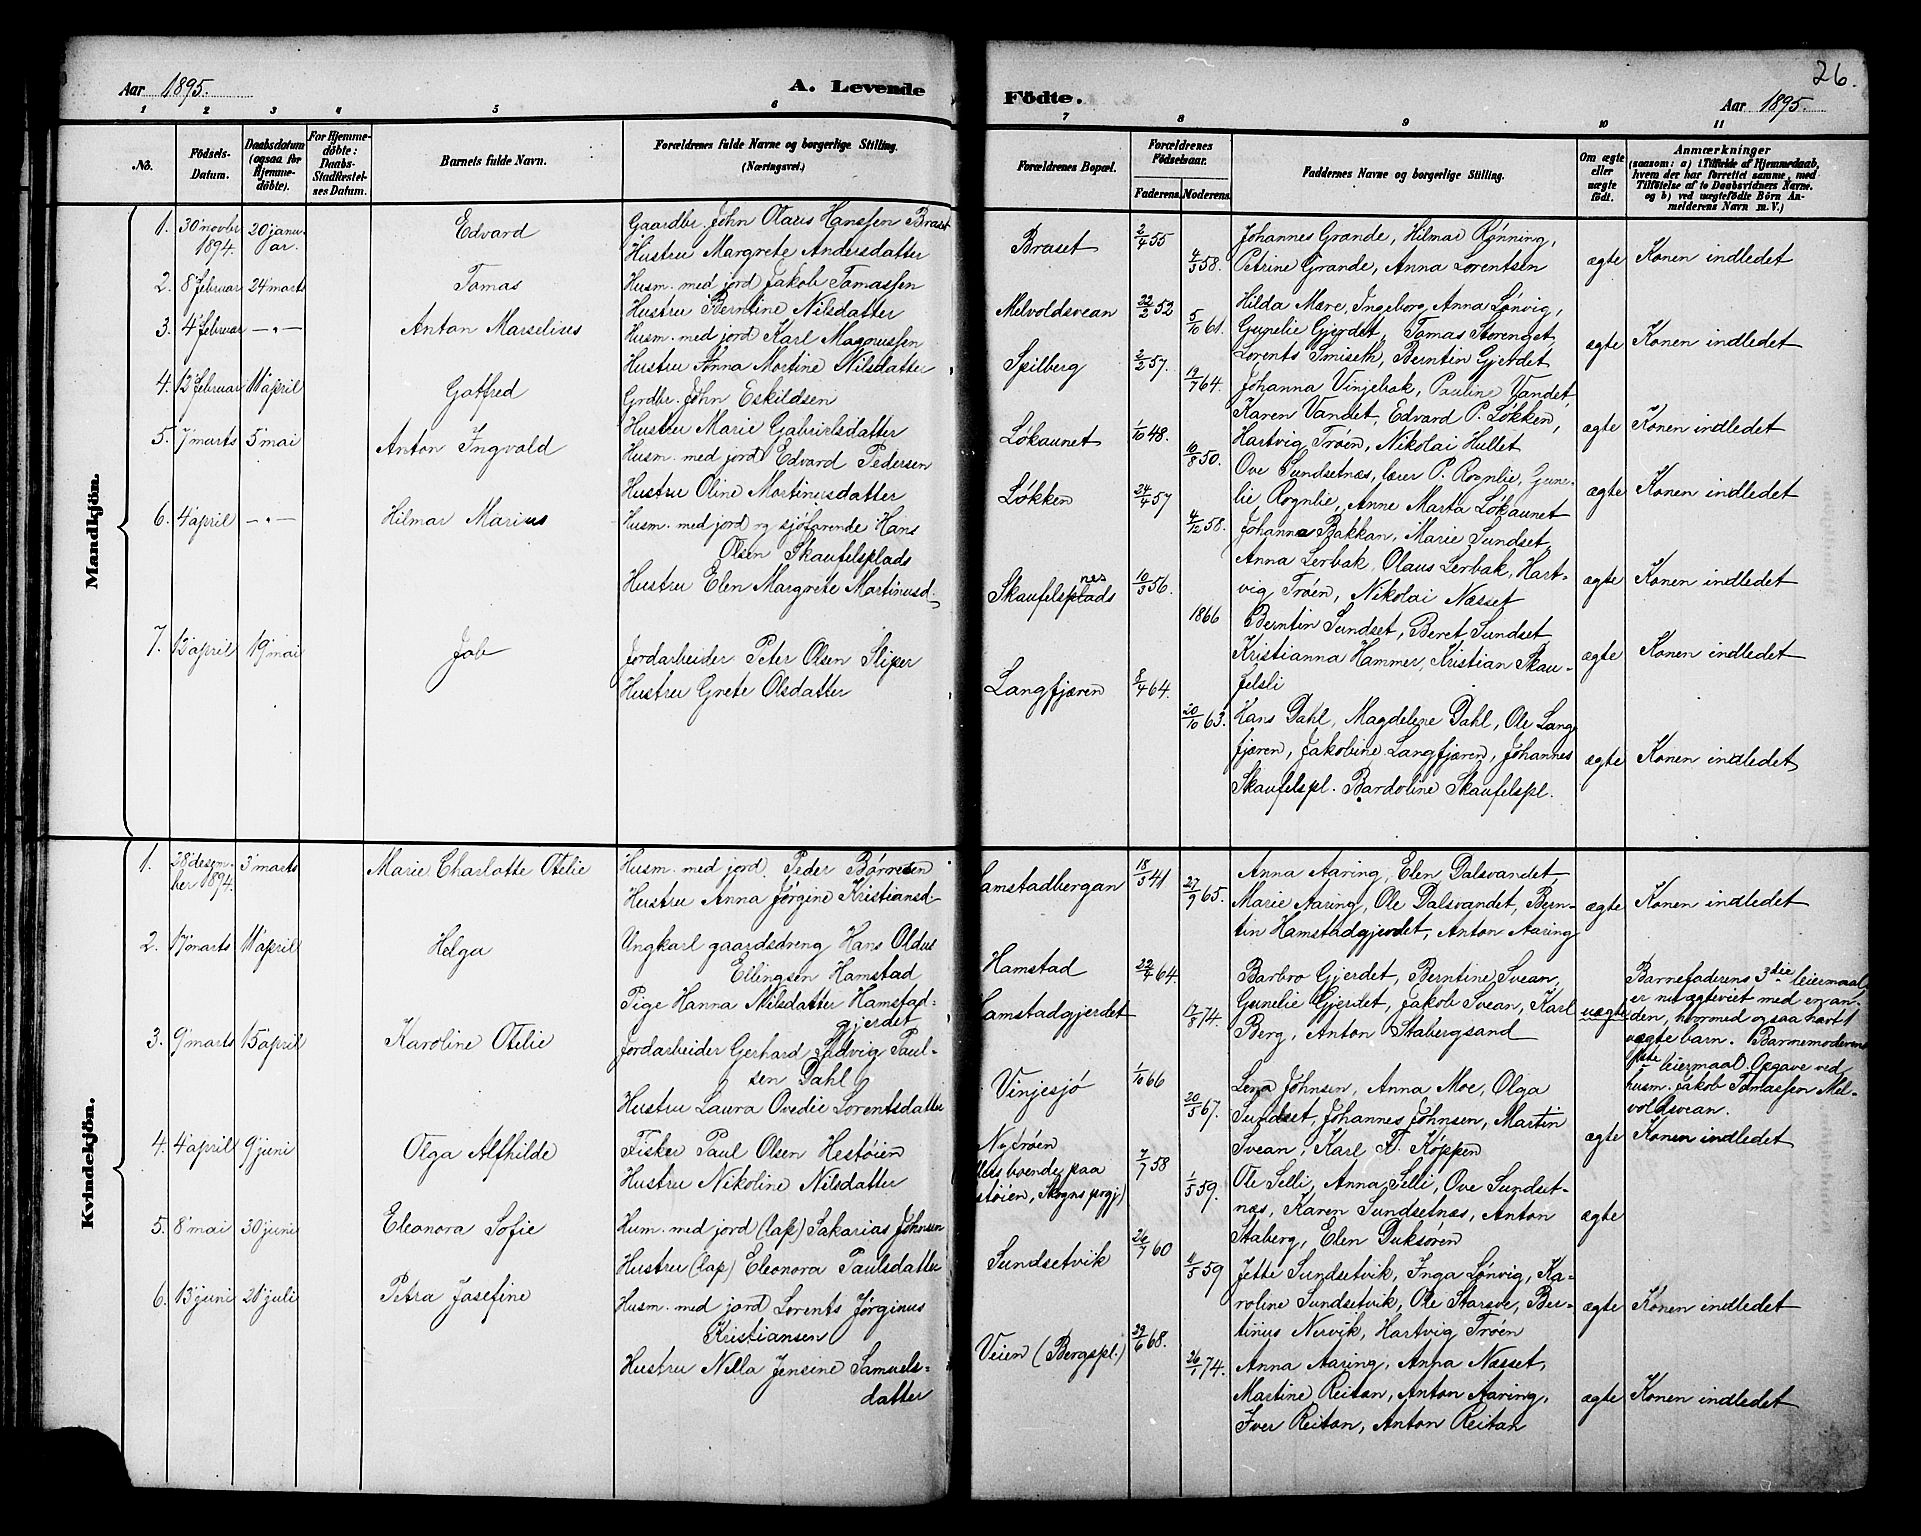 26.
Aar 1895.
A. Levende
Födte.
Aar 1895.
1 2 3 4 5 6 7 8 9 10 11
No.
Födsels-
Datum.
Daabsdatum
(ogsaa for
Hjemme-
döbte).
For Hjemme-
döbte:
Daabs-
Stadfæstel-
ses Datum.
Barnets fulde Navn.
Forældrenes fulde Navne og borgerlige Stilling.
(Næringsvei.)
Forældrenes Bopæl.
Forældrenes
Födselsaar.
Faderens Moderens
Faddernes Navne og borgerlige Stilling.
Om ægte
eller
uægte
födt.
Anmærkninger
(saasom: a) i Tilfælde af Hjemmedaab,
hvem der har forrettet samme, med
Tilföielse af to Daabsvidners Navne,
og b) ved uægtefödte Börn An-
melderens Navn m.V.)
Mandkjön.
1. 30' novbr 1894. 20' janu-
ar.
Edvard
Gaardbr. John Olaus Hanssen Braset
Hustru Margrete Andersdatter
Braset
2/4 55
4/3 58.
Johannes Grande, Hilmar Rønning,
Petrine Grande, Anna Lorentsen
ægte
Konen indledet
2. 8' februar 24' marts
Tomas
Husm. med jord Jakob Tomassen
Hustru Berntine Nilsdatter
Melvoldsvean
22/2 52
5/10 61.
Hilda Mære, Ingeborg Anna Lønvig,
Gunelie Gjerdet, Tomas Storenget
ægte
Konen indledet
3. 4' februar —"—
Anton Marselius
Husm. med jord Karl Magnussen
Hustru Anna Martine Nilsdatter
Spilberg
2/2 57.
19/7 64.
Lorents Smiseth, Berntin Gjerdet
Johanna Vinjebak, Pauline Vandet,
ægte
Konen indledet
4. 12' februar 11' april
Gotfred
Grdbr. John Eskildsen
Hustru Marie Gabrielsdatter
Løkaunet
1/10 48.
10/8 50.
Karen Vandet, Edvard P. Løkken,
Hartvig Trøen, Nikolai Hullet
ægte
Konen indledet
5. 7' marts 5' mai
Anton Ingvald
Husm. med jord Edvard Pedersen
Hustru Oline Martinusdatter
Løkken
24/4 57
4/12 58.
Ove Sundsetnæs, lærer P. Rognlie, Gune-
lie Rognlie, Anne Marta Løkaunet
Johanna Bakkan, Marie Sundset,
ægte
Konen indledet
6. 4' april —"—
Hilmar Marius
Husm. med jord og sjøfarende Hans
Olsen Skaufelsplads
Hustru Elen Margrete Martinusd.
Skaufelsplads
nes
10/3 56.
1866
Anna Lerbak, Olaus Lerbak, Hart-
vig Trøen, Nikolai Næsset
Berntin Sundset, Beret Sundset,
ægte
Konen indledet
7. 13' april 19' mai
Job
Jordarbeider Peter Olsen Sliper
Hustru Grete Olsdatter
Langfjæren
8/4 64.
20/10 63.
Kristianna Hammer, Kristian Skau-
felsli
ægte
Konen indledet
Hans Dahl, Magdelene Dahl, Ole Lang-
fjæren, Jakobine Langfjæren, Johannes
Skaufelspl. Bardoline Skaufelspl.
ægte
Konen indledet
Kvindekjön.
1. 28' desem-
ber 1894. 3' marts
Marie Charlotte Otelie
Husm. med jord Peder Børresen
Hustru Anna Jørgine Kristiansd.
Hamstadbergan
18/3 41
27/9 65.
Anna Aaring, Elen Dalsvandet,
Marie Aaring, Ole Dalsvandet, Bern-
tin Hamstadgjerdet, Anton Aaring
ægte
Konen indledet
2. 17' marts 11' april
Helga
Ungkarl gaardsdreng Hans Oldus
Ellingsen Hamstad
Pige Hanna Nilsdatter Hamstad-
gjerdet
Hamstad
Hamstadgjerdet
22/4 64.
17/8 74.
Barbro Gjerdet, Berntine Svean,
Gunelie Gjerdet, Jakob Svean, Karl
Berg, Anton Stabergsand
uægte
Barnefaderens 3die leiermaal,
er nu ægteviet med en an-
den, hvormed ogsaa havt 1
uægte barn. Barnemoderens
1ste leiermaal. Opgave ved
husm. Jakob Tomassen Mel-
voldsvean.
3. 9' marts 15' april
Karoline Otelie
Jordarbeider Gerhard Ludvig Paul-
sen Dahl
Hustru Laura Ovedie Lorentsdatter
Vinjesjø
1/10 66
20/5 67.
Lena Johnsen, Anna Moe, Olga
Sundset, Johannes Johnsen, Martin
Svean, Karl F. Køppen
ægte
Konen indledet
4. 4' april 9' juni
Olga Alfhilde
Fisker Paul Olsen Hestøien
Hustru Nikoline Nilsdatter
Nytrøen
boende paa
støien, Skogns prgj.)
7/7 58
1/5 59.
Ole Selli, Anna Selli, Ove Sundset-
næs, Karen Sundsetnæs, Anton
Staberg, Elen Duksøren
ægte
5. 8' mai 30' juni
Eleonora Sofie
Hum. med jord (lap) Sakarias Johnsen
Hustru (lap) Eleonora Paulsdatter
Sundsetvik
26/7 60
8/5 59
Jette Sundsetvik, Inga Lønvig, Ka-
roline Sundsetvik, Ole Starsve, Ber-
tinus Nervik, Hartvig Trøen
ægte
Konen indledet
6. 13' juni 21' juli
Petra Josefine
Husm. med jord Lorents Jørginus
Kristiansen
Hustru Nella Jensine Samuels-
datter
Veien (Bergspl.)
29/6 68.
26/1 74.
Anna Aaring, Anna Næsset,
Martine Reitan, Anton Aaring,
Iver Reitan, Anton Reitan
ægte
Konen indledet